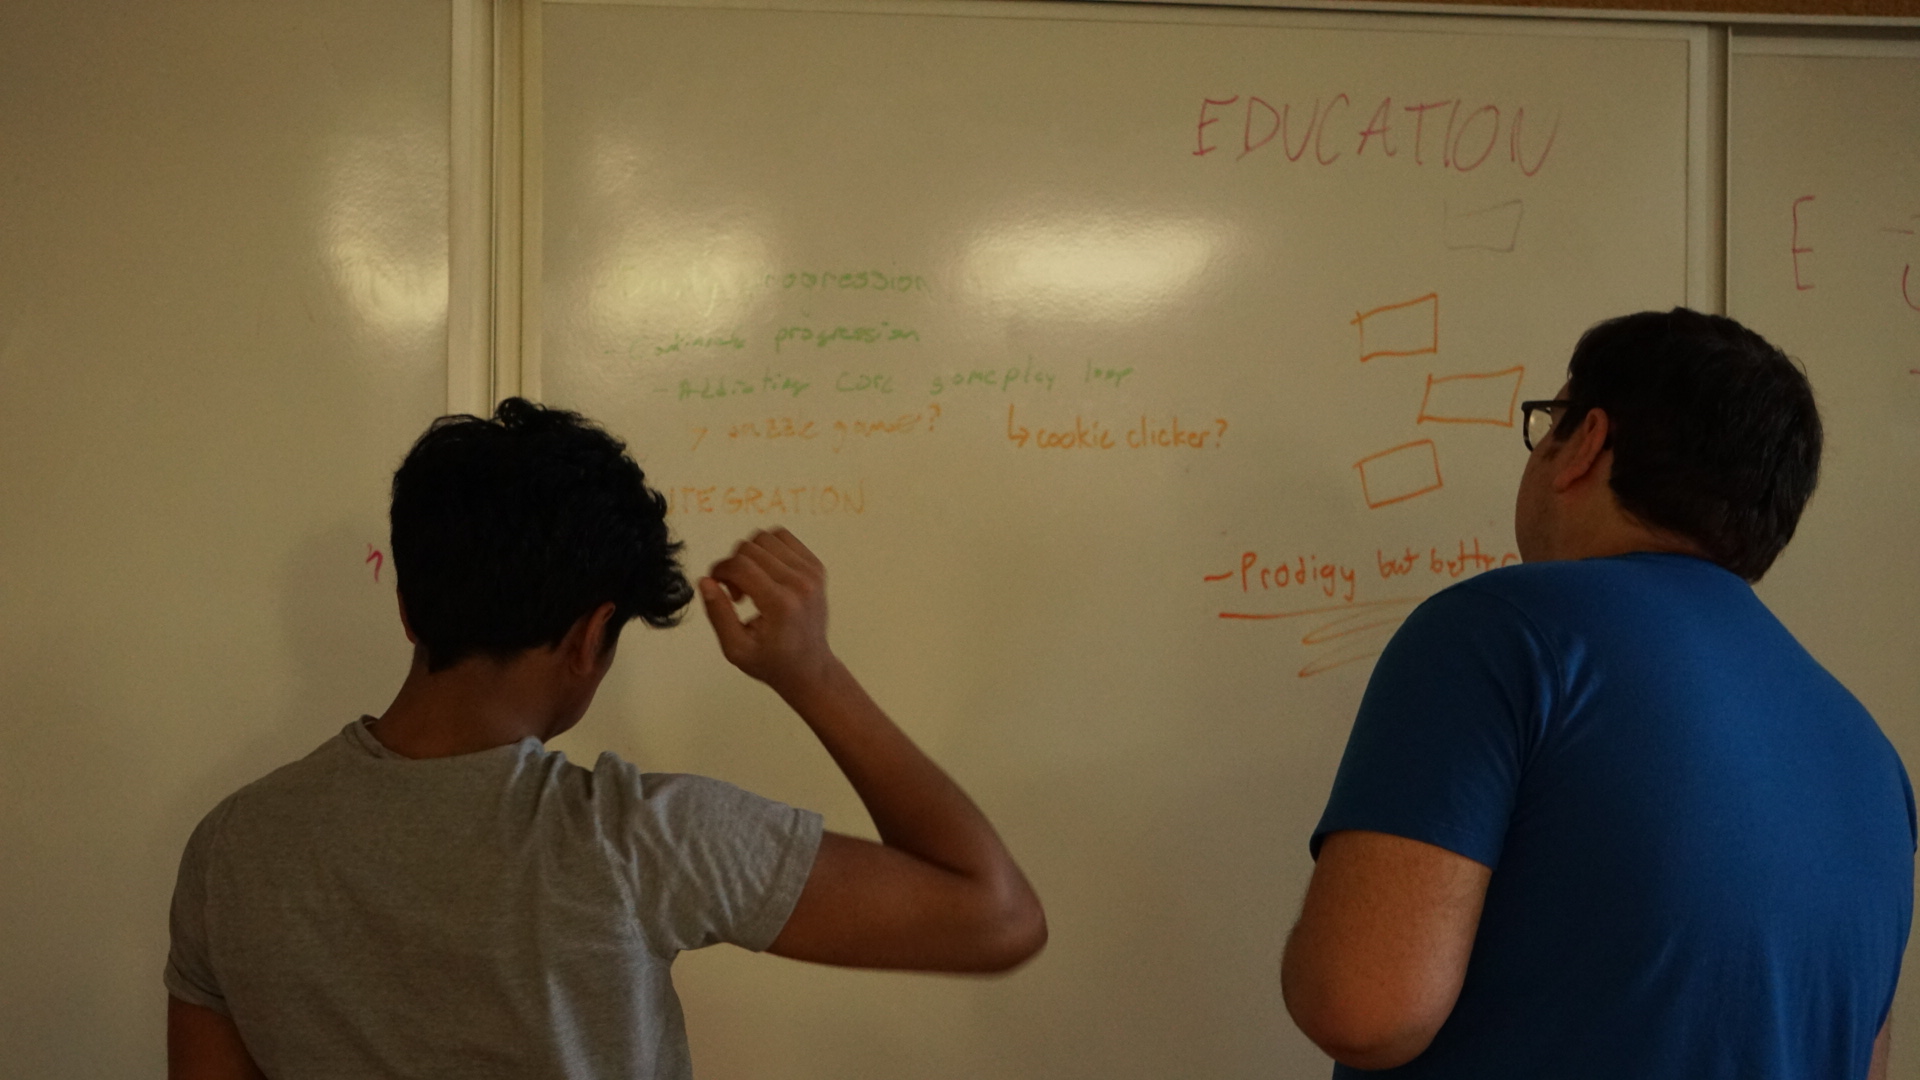 EDUCATION
E
progression
progression
- Addicting core gameplay loop
game? ↳ cookie clicker?
NTEGRATION
- Prodigy but better